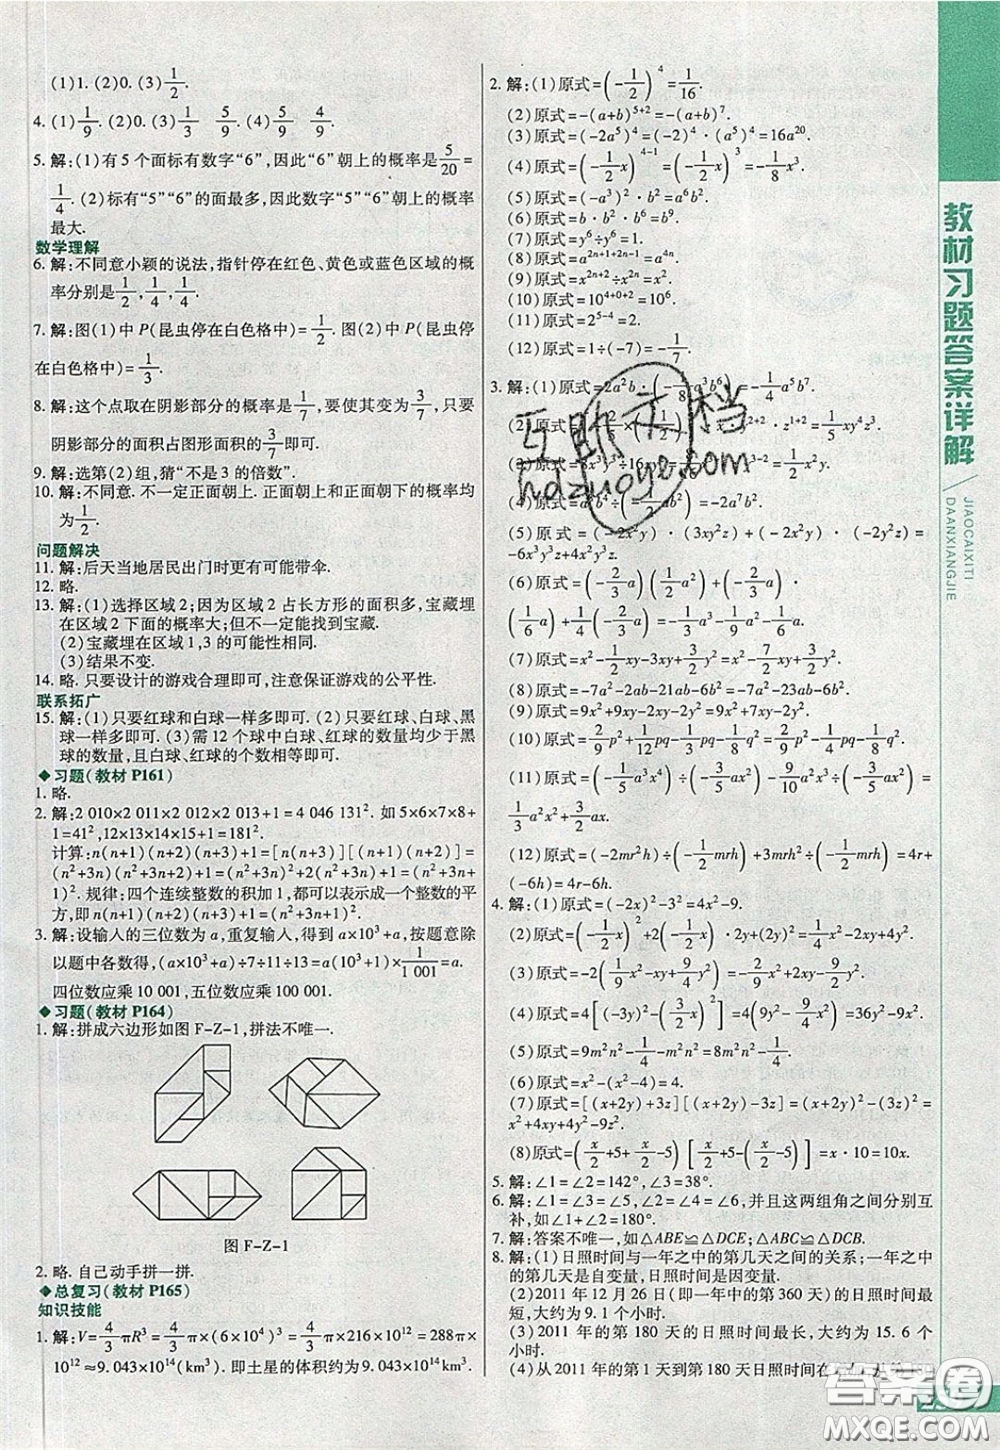 (1)1. (2)0. (3)1/2.
4. (1)1/9. (2)0. (3)1/3 5/9. (4)5/9 4/9.
5. 解:(1)有5个面标有数字“6”,因此“6”朝上的概率是5/20=
1/4. (2)标有“5”“6”的面最多,因此数字“5”“6”朝上的概率
最大.
数学理解
6. 解:不同意小颖的说法,指针停在红色、黄色或蓝色区域的概
率分别是1/2,1/4,1/4.
7. 解:图(1)中P(昆虫停在白色格中)=1/2. 图(2)中P(昆虫停
在白色格中)=1/3.
8. 解:这个点取在阴影部分的概率是1/7,要使其变为3/7,只要
阴影部分的面积占图形面积的3/7即可.
9. 解:选第(2)组,猜“不是3的倍数”.
10. 解:不同意. 不一定正面朝上. 正面朝上和正面朝下的概率均
为1/2.
问题解决
11. 解:后天当地居民出门时更有可能带伞.
12. 略.
13. 解:(1)选择区域2;因为区域2占长方形的面积多,宝藏埋
在区域2下面的概率大;但不一定能找到宝藏.
(2)宝藏埋在区域1,3的可能性相同.
(3)结果不变.
14. 略. 只要设计的游戏合理即可,注意保证游戏的公平性.
联系拓广
15. 解:(1)只要红球和白球一样多即可. (2)只要红球、白球、黑
球一样多即可. (3)需12个球中白球、红球的数量均少于黑
球的数量,且白球、红球的个数相等即可.
◆习题(教材P161)
1. 略.
2. 解:2 010×2 011×2 012×2 013+1=4 046 131². 如5×6×7×8+
1=41²,12×13×14×15+1=181².
计算:n(n+1)(n+2)(n+3)+1=[n(n+3)][(n+1)(n+2)]=
(n²+3n)(n²+3n+2)+1=(n²+3n)²+2(n²+3n)+1=(n²+3n+
1)². 规律:四个连续整数的积加1,都可以表示成一个整数的平
方,即n(n+1)(n+2)(n+3)+1=(n²+3n+1)².
3. 解:设输入的三位数为a,重复输入,得到a×10³+a,按题意除
以题中各数得,(a×10³+a)÷7÷11÷13=a(10³+1)×1/1 001=a.
四位数应乘10 001,五位数应乘100 001.
◆习题(教材P164)
1. 解:拼成六边形如图F-Z-1,拼法不唯一.
图F-Z-1
2. 略. 自己动手拼一拼.
◆总复习(教材P165)
知识技能
1. 解:V=4/3πR³=4/3π×(6×10⁴)³=4/3π×216×10¹²=288π×
10¹²≈9.043×10¹⁴(km³). 即土星的体积约为9.043×10¹⁴km³.
2. 解:(1)原式=(-1/2)⁴=1/16.
(2)原式=-(a+b)⁵⁺²=-(a+b)⁷.
(3)原式=(-2a⁵)⁴=(-2)⁴·(a⁵)⁴=16a²⁰.
(4)原式=(-1/2x)⁴⁻¹=(-1/2x)³=-1/8x³.
(5)原式=(-a³)²·b²=a⁶b².
(6)原式=b·b²·b⁶=b⁹.
(7)原式=y⁶÷y⁶=1.
(8)原式=a²ⁿ⁺¹⁺²ⁿ⁻¹=a⁴ⁿ.
(9)原式=x²ⁿ⁺²÷x²ⁿ=x².
(10)原式=10⁴⁺⁰⁺²=10⁶.
(11)原式=2⁵⁻⁴=2.
(12)原式=1÷(-7)=-1/7.
3. 解:(1)原式=2a²b·(-1/8a³b⁶)=-1/4a⁵b⁷.
(2)原式=(-2/5)×(-1/2)·z¹⁺²=1/5xy⁴z³.
(3)原式=8x³y³÷16x=1/2x²y³.
(4)原式=a⁶b⁴÷=-2a⁷b².
(5)原式=(-2x²y)·(3xy²z)+(-2x²y)·(-2y²z)=
-6x³y³z+4x²y³z.
(6)原式=(-2/3a)(1/2a²)+(-2/3a)
(1/6a)+(-2/3a)(1/4)=-1/3a³-1/9a²-1/6a.
(7)原式=x²-1/2xy-3xy+3/2y²=x²-7/2xy+3/2y².
(8)原式=-7a²-2ab-21ab-6b²=-7a²-23ab-6b².
(9)原式=9x²+9xy-4xy-4y²=9x²+5xy-4y².
(10)原式=2/9p²+1/12pq-2/3pq-1/4q²=2/9p²-7/12pq-1/4q².
(11)原式=(-1/5a³x⁴)÷(-3/5ax³)-9/10a²x³÷(-3/5ax²)=
1/3a²x+3/2ax.
(12)原式=(-2mr²h)÷(-1/2mrh)+3mrh²÷(-1/2mrh)=4r+
(-6h)=4r-6h.
4. 解:(1)原式=(-2x)²-3²=4x²-9.
(2)原式=(-1/2x)²+2(-1/2x)·2y+(2y)²=1/4x²-2xy+4y².
(3)原式=1/9x²-xy+9/4y².
(4)原式=4[(-3y)²-(3/2x)²]=4(9y²-9/4x²)=36y²-9x².
(5)原式=9m²n²-1/4-m²n²=8m²n²-1/4.
(6)原式=x²-(x²-4)=4.
(7)原式=[(x+2y)+3z][(x+2y)-3z]=(x+2y)²-(3z)²=
x²+4xy+4y²-9z².
(8)原式=(x/2+5+x/2-5)[x/2+5-(x/2-5)]=x·10=10x.
5. 解:∠1=∠2=142°,∠3=38°.
6. 解:∠1=∠3=∠5,∠2=∠4=∠6,并且这两组角之间分别互
补,如∠1+∠2=180°.
7. 解:答案不唯一,如△ABE≌△DCE;△ABC≌△DCB.
8. 解:(1)日照时间与一年之中的第几天之间的关系;一年之中
的第几天是自变量,日照时间是因变量.
(2)2011年12月26日(即一年中的第360天)的日照时间最
短,大约为9.1个小时.
(3)2011年的第180天的日照时间最长,大约为15.6个
小时.
(4)从2011年的第1天到第180天日照时间在
教材习题答案详解
JIAOCAIXITI
DAANXIANGJIE
互助文档
hdzuoye.com
答案圈
MXQE.COM